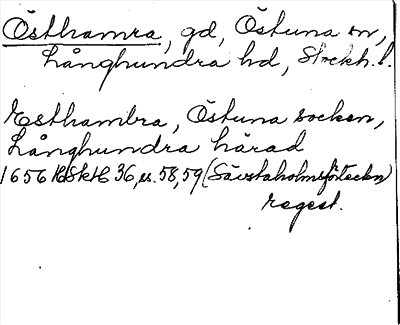 Östhamra, gd, Östuna sn,
Långhundra hd, Stockh. l.
Esthambra, Östuna socken,
Långhundra härad
1656 HSkH 36, s. 58, 59 (Sävstaholmsförteckn)
regest.